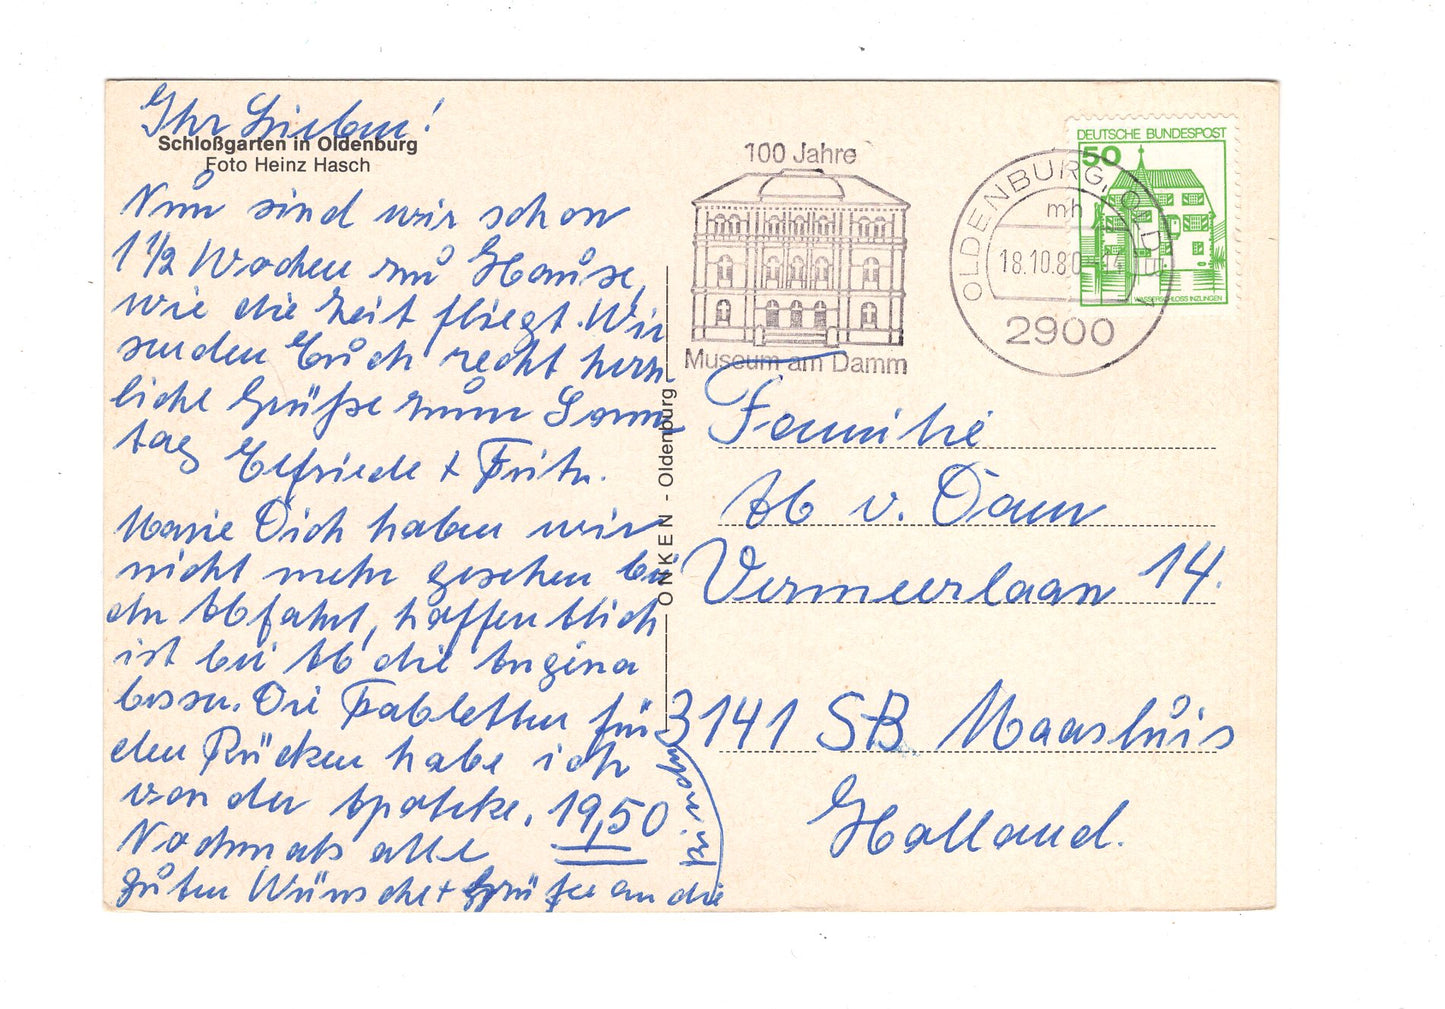 Ihr Lieben!
Schloßgarten in Oldenburg
Foto Heinz Hasch
Nun sind wir schon
1 1/2 Wochen zu Hause,
wie die Zeit fliegt. Wir
senden Euch recht herz-
liche Grüße zum Sonn-
tag Elfriede + Fritz.
Marie Dich haben wir
nicht mehr gesehen bei
der Abfahrt, hoffentlich
ist bei Ab die Angina
besser. Die Tabletten für
den Rücken habe ich
von der Apotheke, 19,50
Nochmals alle
guten Wünsche + Grüße an die
ONKEN - Oldenburg
100 Jahre
Museum am Damm
OLDENBURG, OLDB
mh
18.10.80-14
2900
DEUTSCHE BUNDESPOST
50
WASSERSCHLOSS INZLINGEN
Familie
Ab v. Dam
Vermeerlaan 14.
3141 SB Maasluis
Holland.